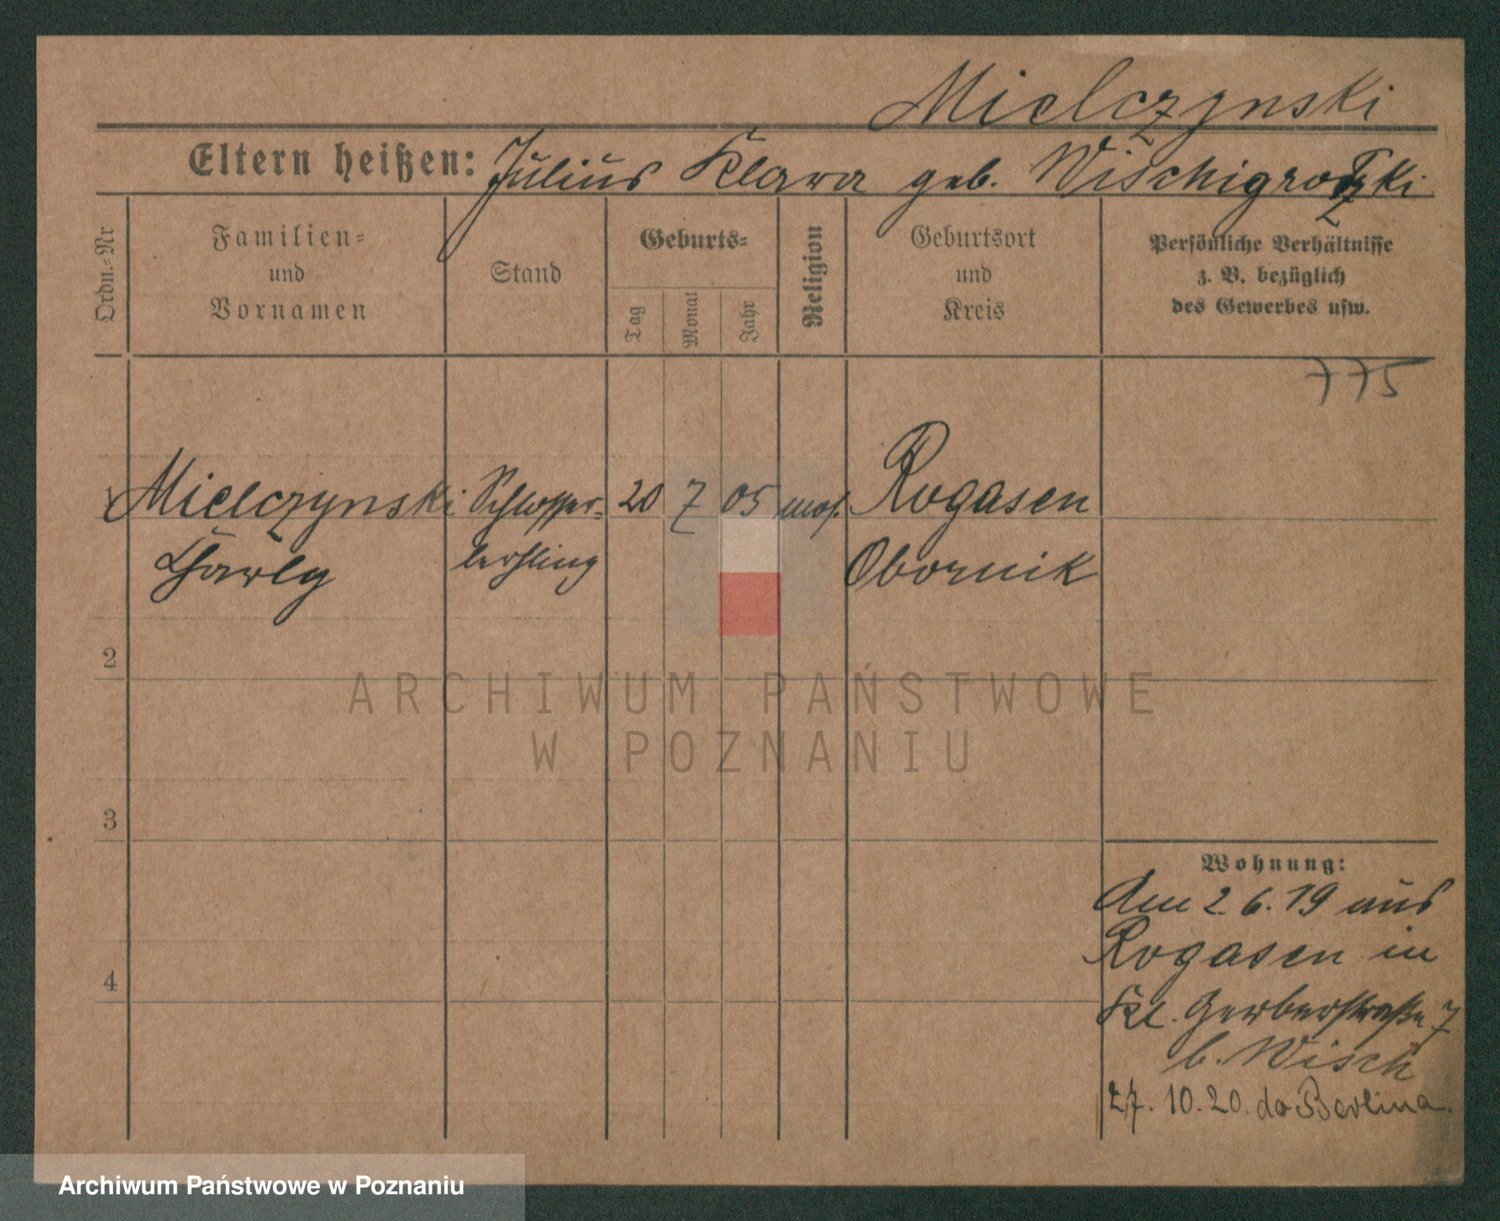 Mielczynski
Eltern heißen: Julius Klara geb. Wischigrodzki
Ordn.-Nr
Familien-
und
Vornamen
Stand
Geburts-
Tag
Monat
Jahr
Religion
Geburtsort
und
Kreis
Persönliche Verhältnisse
z. B. bezüglich
des Gewerbes usw.
775
1 Mielczynski Schlosser- 20 7 05 mos. Rogasen
Charly lehrling Obornik
2
3
4
Wohnung:
Am 2.6.19 aus
Rogasen in
Kl. Gerberstraße 7
b. Wisch
27. 10. 20. do Berlina.
ARCHIWUM PAŃSTWOWE
W POZNANIU
Archiwum Państwowe w Poznaniu